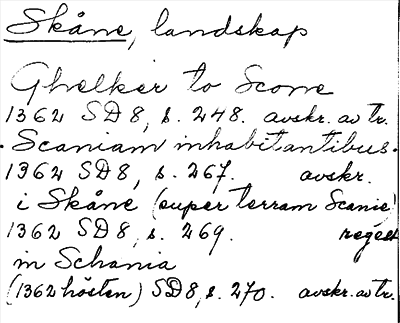 Skåne, landskap
Ghelker to Scone
1362 SD8, s. 248. avskr. av tr.
Scaniam inhabitantibus.
1362 SD8, s. 267. avskr.
i Skåne (super terram Scanie)
1362 SD8, s. 269. regest
in Schania
(1362 hösten) SD8, s. 270. avskr. av tr.